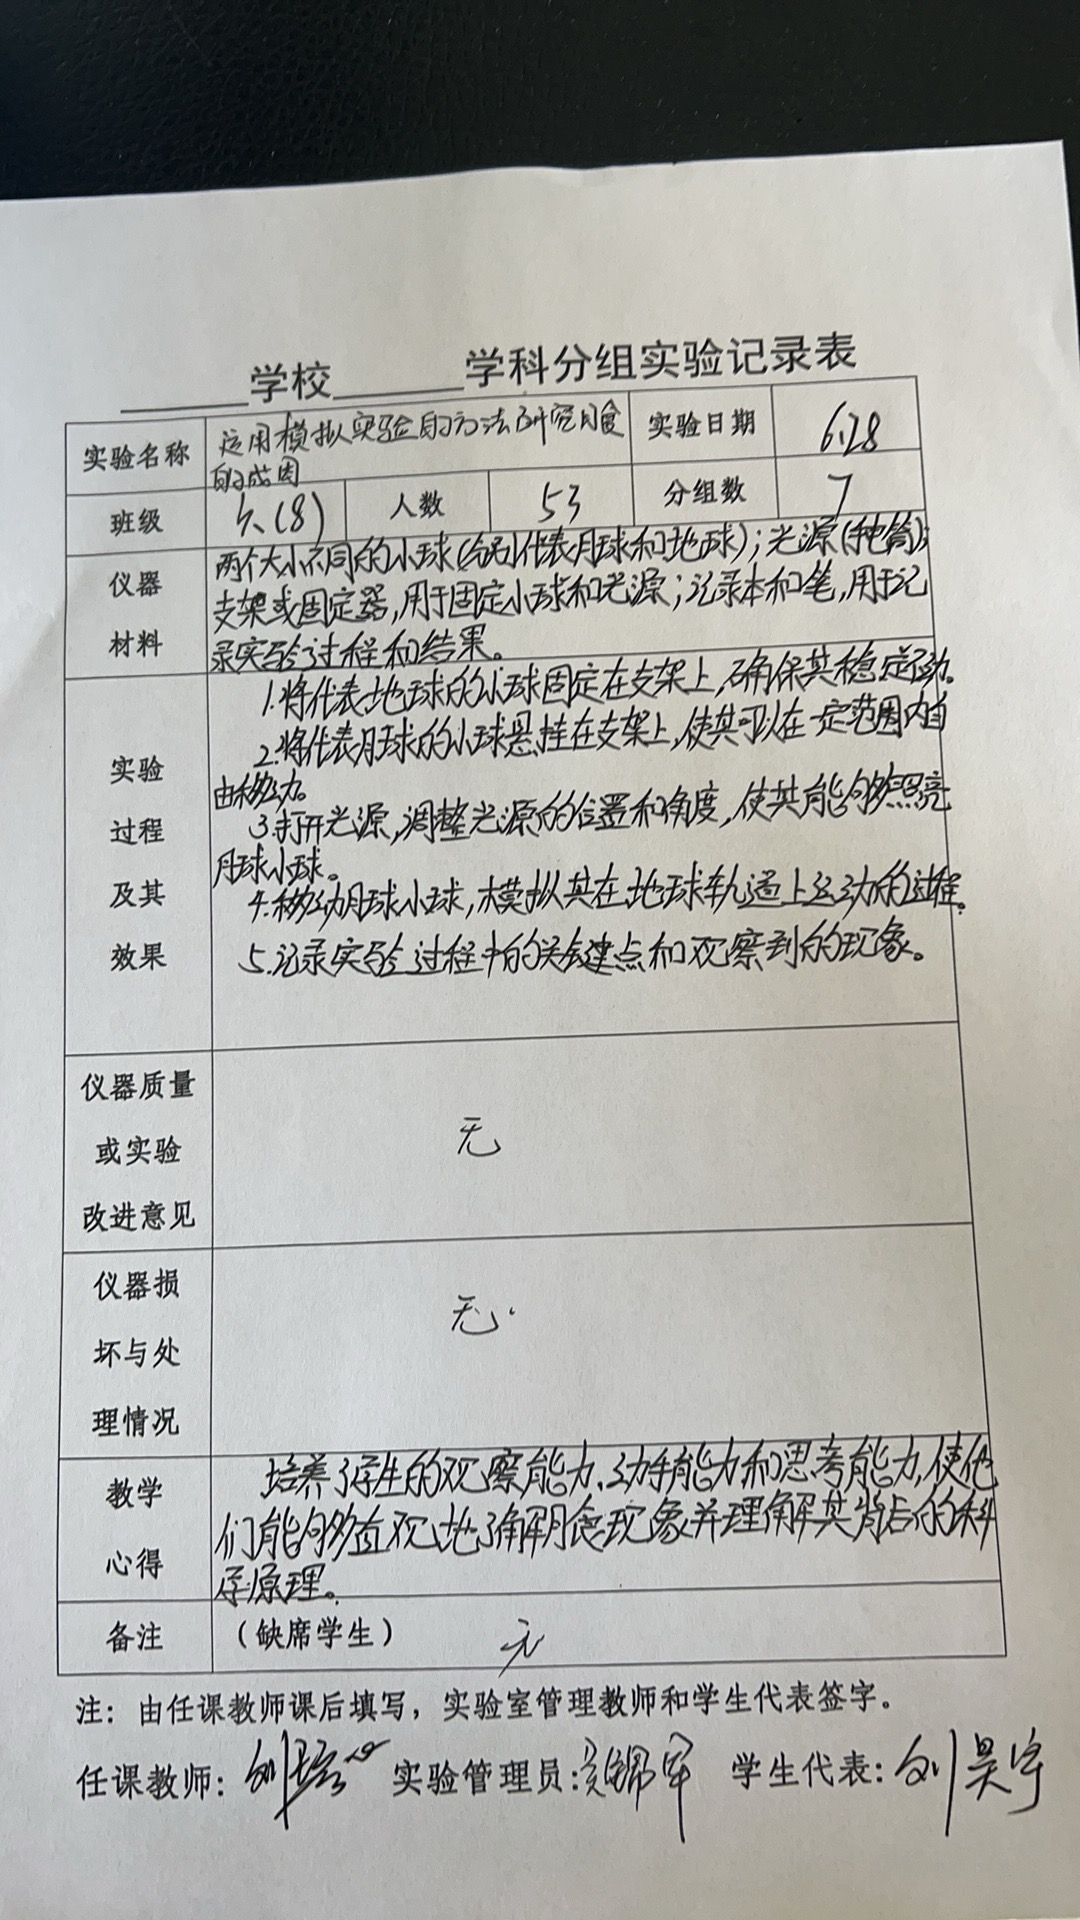 ______学校______学科分组实验记录表
实验名称 运用模拟实验的方法研究月食的成因 实验日期 6.28
班级 六(8) 人数 53 分组数 7
仪器材料
两个大小不同的小球(分别代表月球和地球);光源(手电筒);
支架或固定器,用于固定小球和光源;记录本和笔,用于记
录实验过程和结果。
实验过程及其效果
1.将代表地球的小球固定在支架上,确保其稳定不动。
2.将代表月球的小球悬挂在支架上,使其可以在一定范围内自
由移动。
3.打开光源,调整光源的位置和角度,使其能够照亮
月球小球。
4.移动月球小球,模拟其在地球轨道上运动的过程。
5.记录实验过程中的关键点和观察到的现象。
仪器质量或实验改进意见 无
仪器损坏与处理情况 无.
教学心得
培养了学生的观察能力、动手能力和思考能力,使他
们能够直观地了解月食现象并理解其背后的科
学原理。
备注 (缺席学生) 无
注:由任课教师课后填写,实验室管理教师和学生代表签字。
任课教师: 刘 实验管理员: 学生代表: 刘昊宇